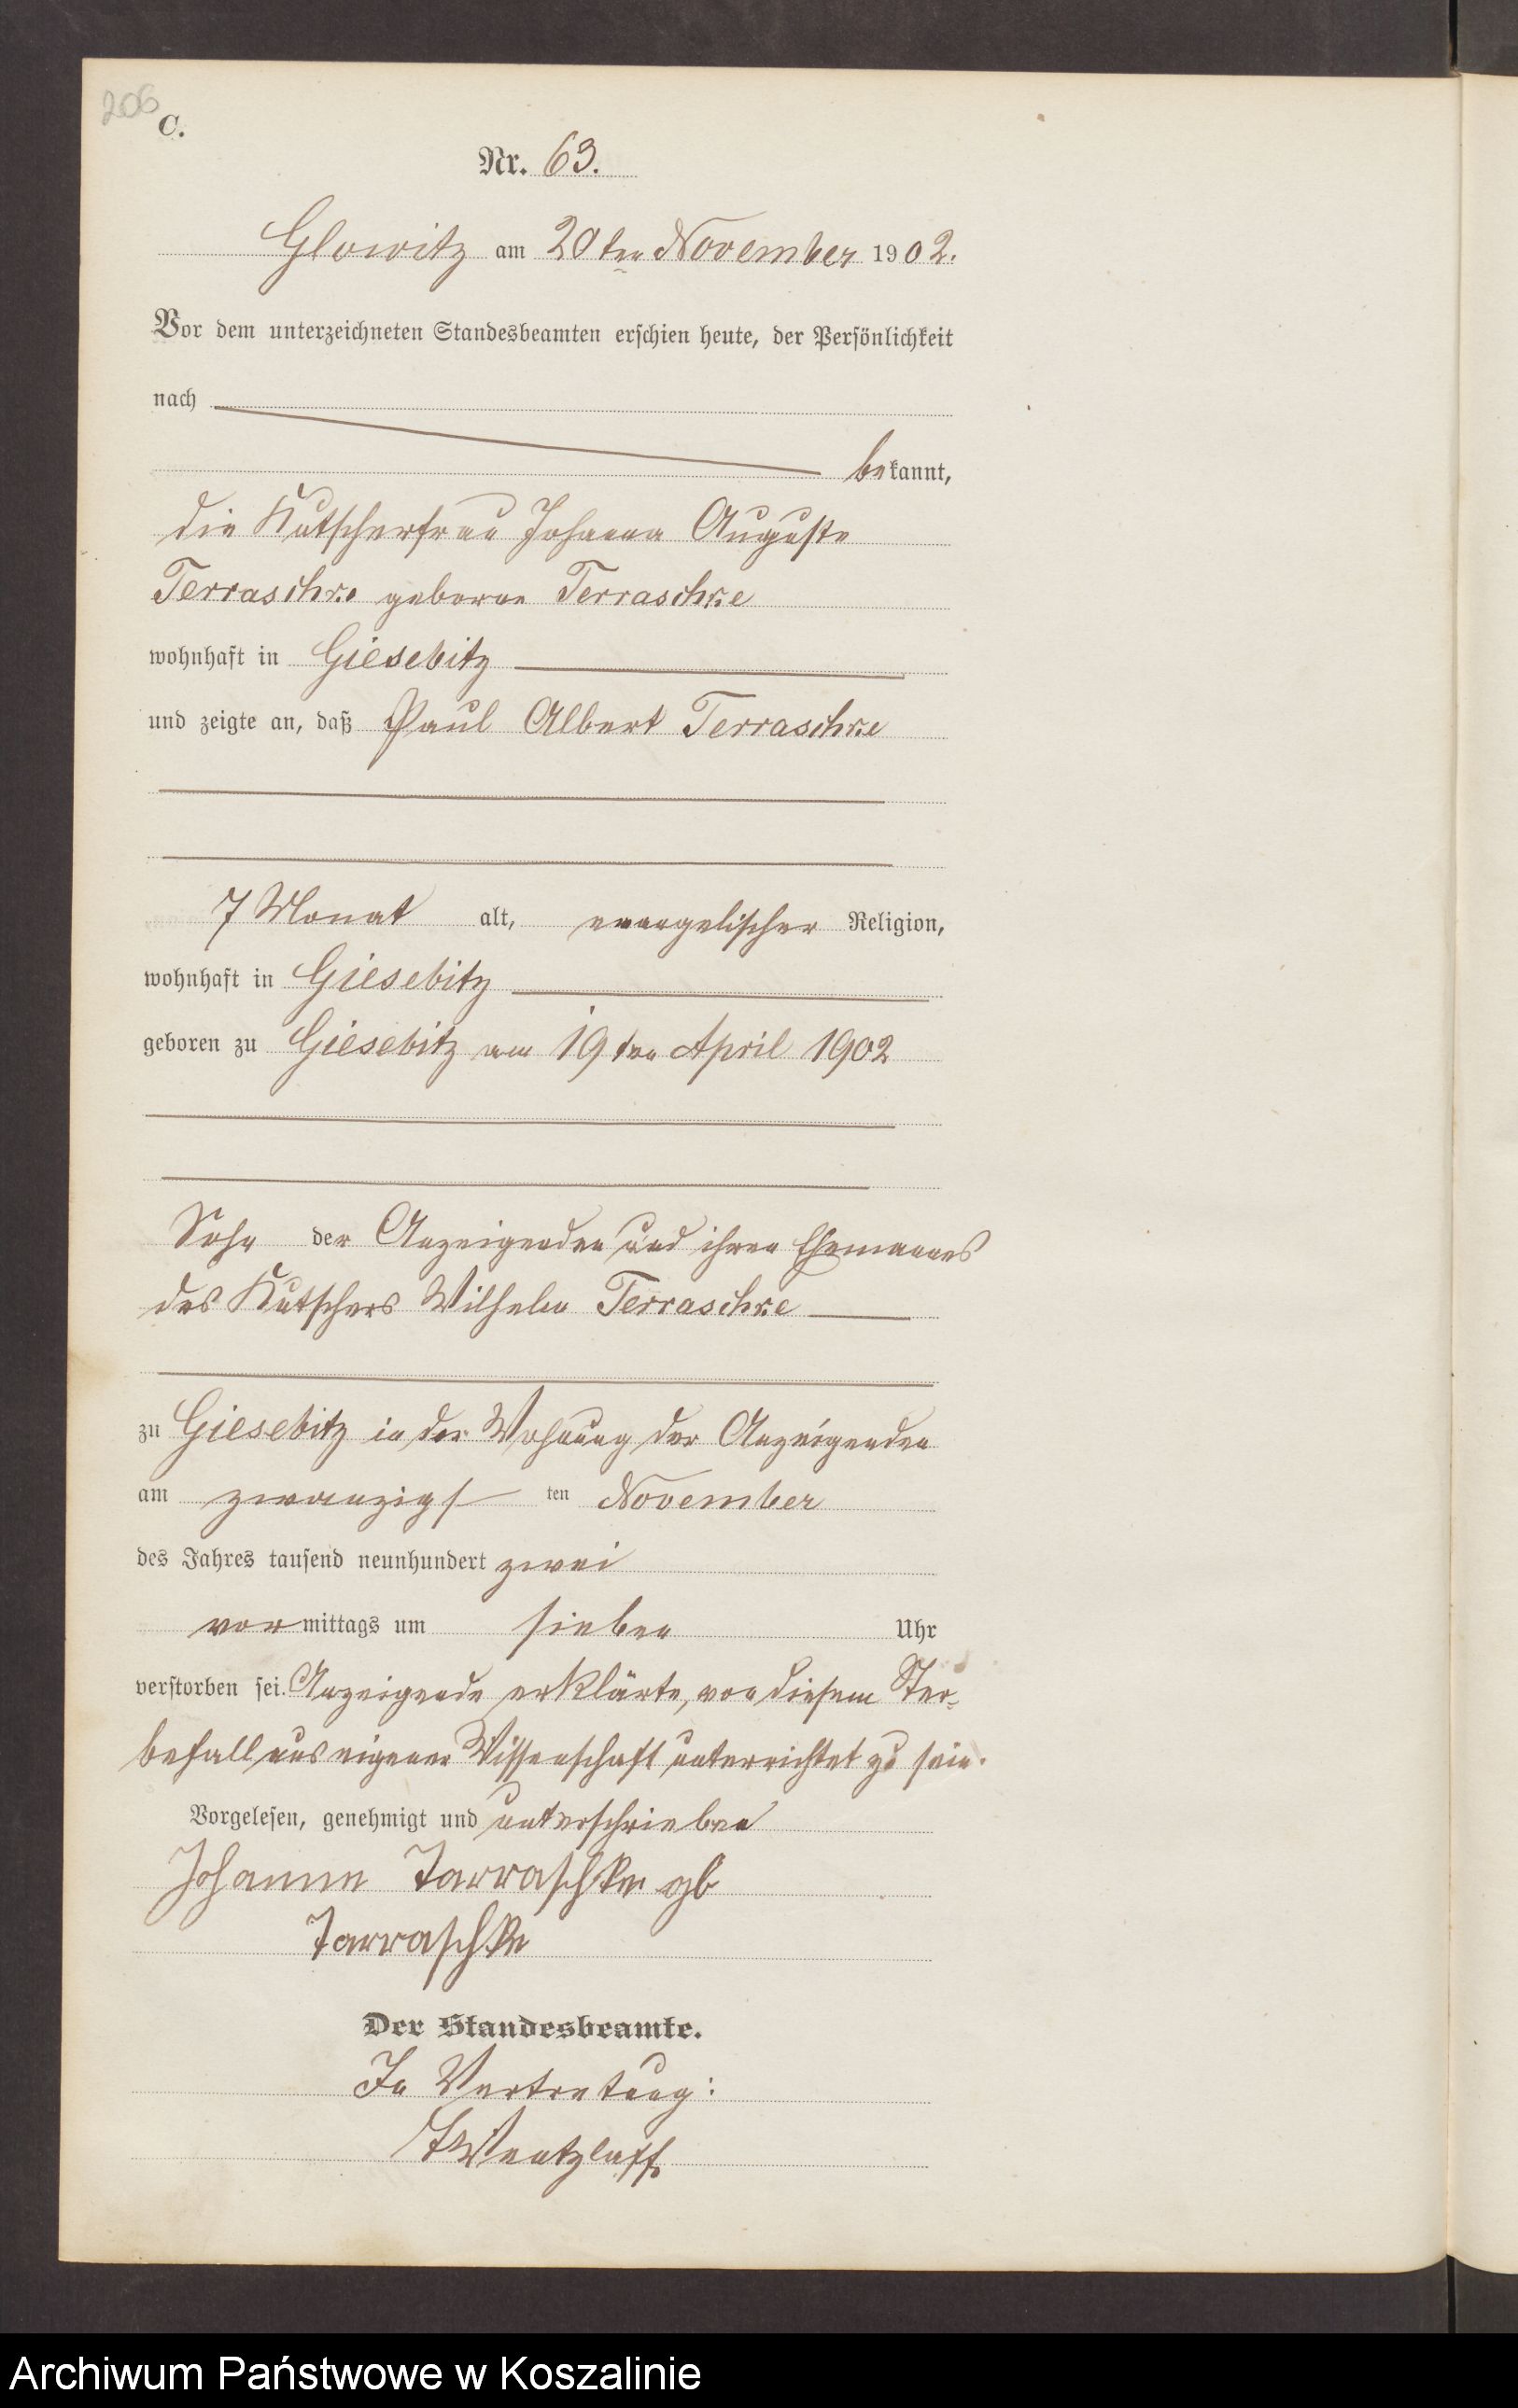 206
C.
Nr. 63.
Glowitz am 20ten November 1902.
Vor dem unterzeichneten Standesbeamten erschien heute, der Persönlichkeit
nach
bekannt,
die Kutscherfrau Johanna Auguste
Terraschke geborne Terraschke
wohnhaft in Giesebitz
und zeigte an, daß Paul Albert Terraschke
7 Monat alt, evangelischer Religion,
wohnhaft in Giesebitz
geboren zu Giesebitz am 19ten April 1902
Sohn der Anzeigenden und ihren Ehemannes
des Kutschers Wilhelm Terraschke
zu Giesebitz in der Wohnung der Anzeigenden
am zwanzigsten November
des Jahres tausend neunhundert zwei
vormittags um sieben Uhr
verstorben sei. Anzeigende erklärte, von diesem Ster-
befall aus eigener Wissenschaft unterrichtet zu sein.
Vorgelesen, genehmigt und unterschrieben
Johanne Tarraschke gb
Tarraschke
Der Standesbeamte.
In Vertretung:
Wentzlaff
Archiwum Państwowe w Koszalinie